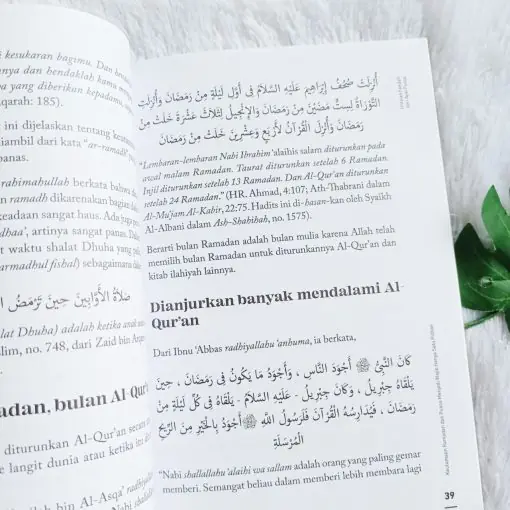 kesukaran bagimu. Dan
dan hendaklah kamu
yang diberikan kepadamu,
185).
ini dijelaskan tentang
diambil dari kata "ar-ramadh"
panas.
rahimahullah berkata bahwa
ramadh dikarenakan
keadaan sangat haus. Ada juga
artinya sangat panas.
waktu shalat Dhuha yang
sebagaimana
صَلَاةُ الْأَوَّابِينَ حِينَ تَرْمَضُ
Dhuha) adalah ketika
no. 748, dari Zaid bin
bulan Al-Qur'
diturunkan Al-Qur'an secara
langit dunia atau ketika
bin Al-Asqa'
أُنْزِلَتْ صُحُفُ إِبْرَاهِيمَ عَلَيْهِ السَّلَامُ فِى أَوَّلِ لَيْلَةٍ مِنْ رَمَضَانَ وَأُنْزِلَتِ
التَّوْرَاةُ لِسِتٍّ مَضَيْنَ مِنْ رَمَضَانَ وَالإِنْجِيلُ لِثَلَاثَ عَشْرَةَ خَلَتْ مِنْ
رَمَضَانَ وَأُنْزِلَ الْقُرْآنُ لأَرْبَعٍ وَعِشْرِينَ خَلَتْ مِنْ رَمَضَانَ
"Lembaran-lembaran Nabi Ibrahim 'alaihis salam diturunkan pada
awal malam Ramadan. Taurat diturunkan setelah 6 Ramadan.
Injil diturunkan setelah 13 Ramadan. Dan Al-Qur'an diturunkan
setelah 24 Ramadan." (HR. Ahmad, 4:107; Ath-Thabrani dalam
Al-Mu'jam Al-Kabir, 22:75. Hadits ini di-hasan-kan oleh Syaikh
Al-Albani dalam Ash-Shahihah, no. 1575).
Berarti bulan Ramadan adalah bulan mulia karena Allah telah
memilih bulan Ramadan untuk diturunkannya Al-Qur'an dan
kitab ilahiyah lainnya.
Dianjurkan banyak mendalami Al-
Qur'an
Dari Ibnu 'Abbas radhiyallahu 'anhuma, ia berkata,
كَانَ النَّبِيُّ ﷺ أَجْوَدَ النَّاسِ ، وَأَجْوَدُ مَا يَكُونُ فِى رَمَضَانَ ، حِينَ
يَلْقَاهُ جِبْرِيلُ ، وَكَانَ جِبْرِيلُ - عَلَيْهِ السَّلَامُ - يَلْقَاهُ فِى كُلِّ لَيْلَةٍ مِنْ
رَمَضَانَ ، فَيُدَارِسُهُ الْقُرْآنَ فَلَرَسُولُ اللَّهِ ﷺ أَجْوَدُ بِالْخَيْرِ مِنَ الرِّيحِ
الْمُرْسَلَةِ
"Nabi shallallahu 'alaihi wa sallam adalah orang yang paling gemar
memberi. Semangat beliau dalam memberi lebih membara lagi
39